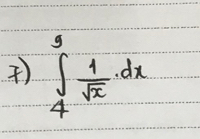 7) ∫₄⁹ 1/√x · dx